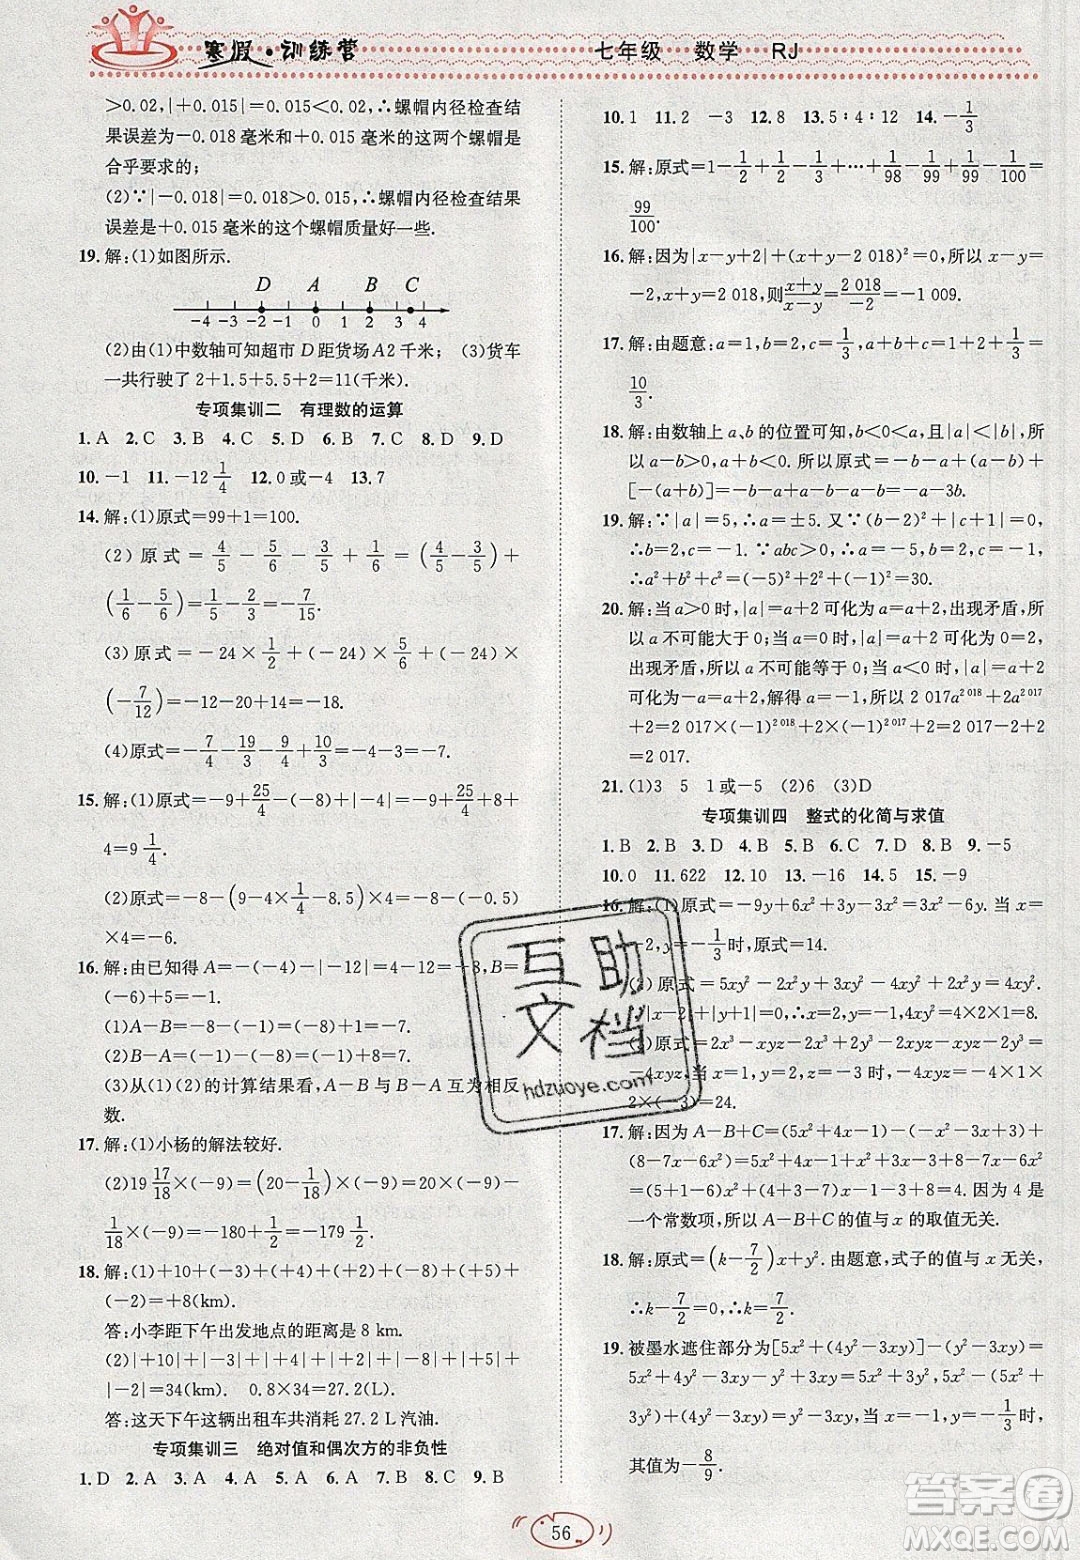 寒假·训练营
七年级 数学 RJ
>0.02,|+0.015|=0.015<0.02,∴螺帽内径检查结
果误差为-0.018毫米和+0.015毫米的这两个螺帽是
合乎要求的;
(2)∵|-0.018|=0.018>0.015,∴螺帽内径检查结果
误差是+0.015毫米的这个螺帽质量好一些.
19.解:(1)如图所示.
D A B C
-4 -3 -2 -1 0 1 2 3 4
(2)由(1)中数轴可知超市D距货场A2千米; (3)货车
一共行驶了2+1.5+5.5+2=11(千米).
专项集训二 有理数的运算
1.A 2.C 3.B 4.C 5.D 6.B 7.C 8.D 9.D
10.-1 11.-12 1/4 12.0或-4 13.7
14.解:(1)原式=99+1=100.
(2)原式=4/5-5/6-3/5+1/6=(4/5-3/5)+
(1/6-5/6)=1/5-2/3=-7/15.
(3)原式=-24×1/2+(-24)×
(-7/12)=-12+14=2.
(4)原式=-7/4-19/3-9/4+10/3=-4-3=-7.
15.解:(1)原式=-9+25/4-(-12)=-9+25/4+12=
4=9 1/4.
(2)原式=-8-(9-4×1/4-8.5)=-8-(-0.5)
×4=-6.
16.解:由已知得A=-(-4)-|-12|=4-12=-8,B=
(-6)+5=-1.
(1)A-B=-8-(-1)=-8+1=-7.
(2)B-A=-1-(-8)=-1+8=7.
(3)从(1)(2)的计算结果看,A-B与B-A互为相反
数.
17.解:(1)小杨的解法较好.
(2)19 17/18×(-9)=(20-1/18)×(-9)=20×(-9)-
1/18×(-9)=-180+1/2=-179 1/2.
18.解:(1)+10+(-3)+(-8)+11+(-10)+3+5+
(-2)=+8(km).
答:小李距下午出发地点的距离是8 km.
|-2|=34(km). 0.8×34=27.2(L).
答:这天下午这辆出租车共消耗27.2 L汽油.
专项集训三 绝对值和偶次方的非负性
1.D 2.A 3.A 4.D 5.B 6.A 7.A 8.C 9.B
10.1 11.2 -3 12.8 13.5:4:12 14.-1/3
15.解:原式=1-1/2+1/2-1/3+…+1/98-1/99+1/99-1/100=
99/100.
16.解:因为|x-y+2|+(x+y-2 018)²=0,所以x-y=
-2,x+y=2 018,则(x+y)/(x-y)=2 018/-2=-1 009.
17.解:由题意:a=1,b=2,c=1/3,则a+b+c=1+2+1/3=
10/3.
18.解:由数轴上a、b的位置可知,b<0<a,且|a|<|b|,所
以a-b>0,a+b<0.所以原式=-2b+(a-b)+
[-(a+b)]=-2b+a-b-a-b=-a-3b.
19.解:∵|a|=5,∴a=±5.又∵(b-2)²+|c+1|=0,
∴b=2,c=-1.∵abc>0,∴a=-5,b=2,c=-1,
∴a²+b²+c²=(-5)²+2²+(-1)²=30.
20.解:当a>0时,|a|=a+2可化为a=a+2,出现矛盾,所
以a不可能大于0;当a=0时,|a|=a+2可化为0=2,
出现矛盾,所以a不可能等于0;当a<0时,|a|=a+2
可化为-a=a+2,解得a=-1.所以2 017a^2 018+2a^2 017
+2=2 017×(-1)^2 018+2×(-1)^2 017+2=2 017-2+2
=2 017.
21.(1)3 5 1或-5 (2)6 (3)D
专项集训四 整式的化简与求值
1.B 2.B 3.D 4.B 5.B 6.C 7.D 8.B 9.-5
10.0 11.622 12.10 13.-16 14.5 15.-9
16.解:(1)原式=-9y+6x²+3y-4x²=2x²-6y.当x=
-2,y=-1/3时,原式=14.
(2)原式=5xy²-2x²y+2x²y-xy²=4xy².当
(3)原式=2x³-xyz-2x³+2y³-2y³-xyz=-2xyz.
2×(-3)=24.
17.解:因为A-B+C=(5x²+4x-1)-(-x²-3x+3)+
(8-7x-6x²)=5x²+4x-1+x²+3x-3+8-7x-6x²
=(5+1-6)x²+(4+3-7)x-1-3+8=4.因为4是
一个常数项,所以A-B+C的值与x的取值无关.
18.解:原式=(k-7/2)x+y².由题意,式子的值与x无关,
∴k-7/2=0,∴k=7/2.
其值为-8/9.
互助文档
hdzuoye.com
答案圈
MXQE.COM
56